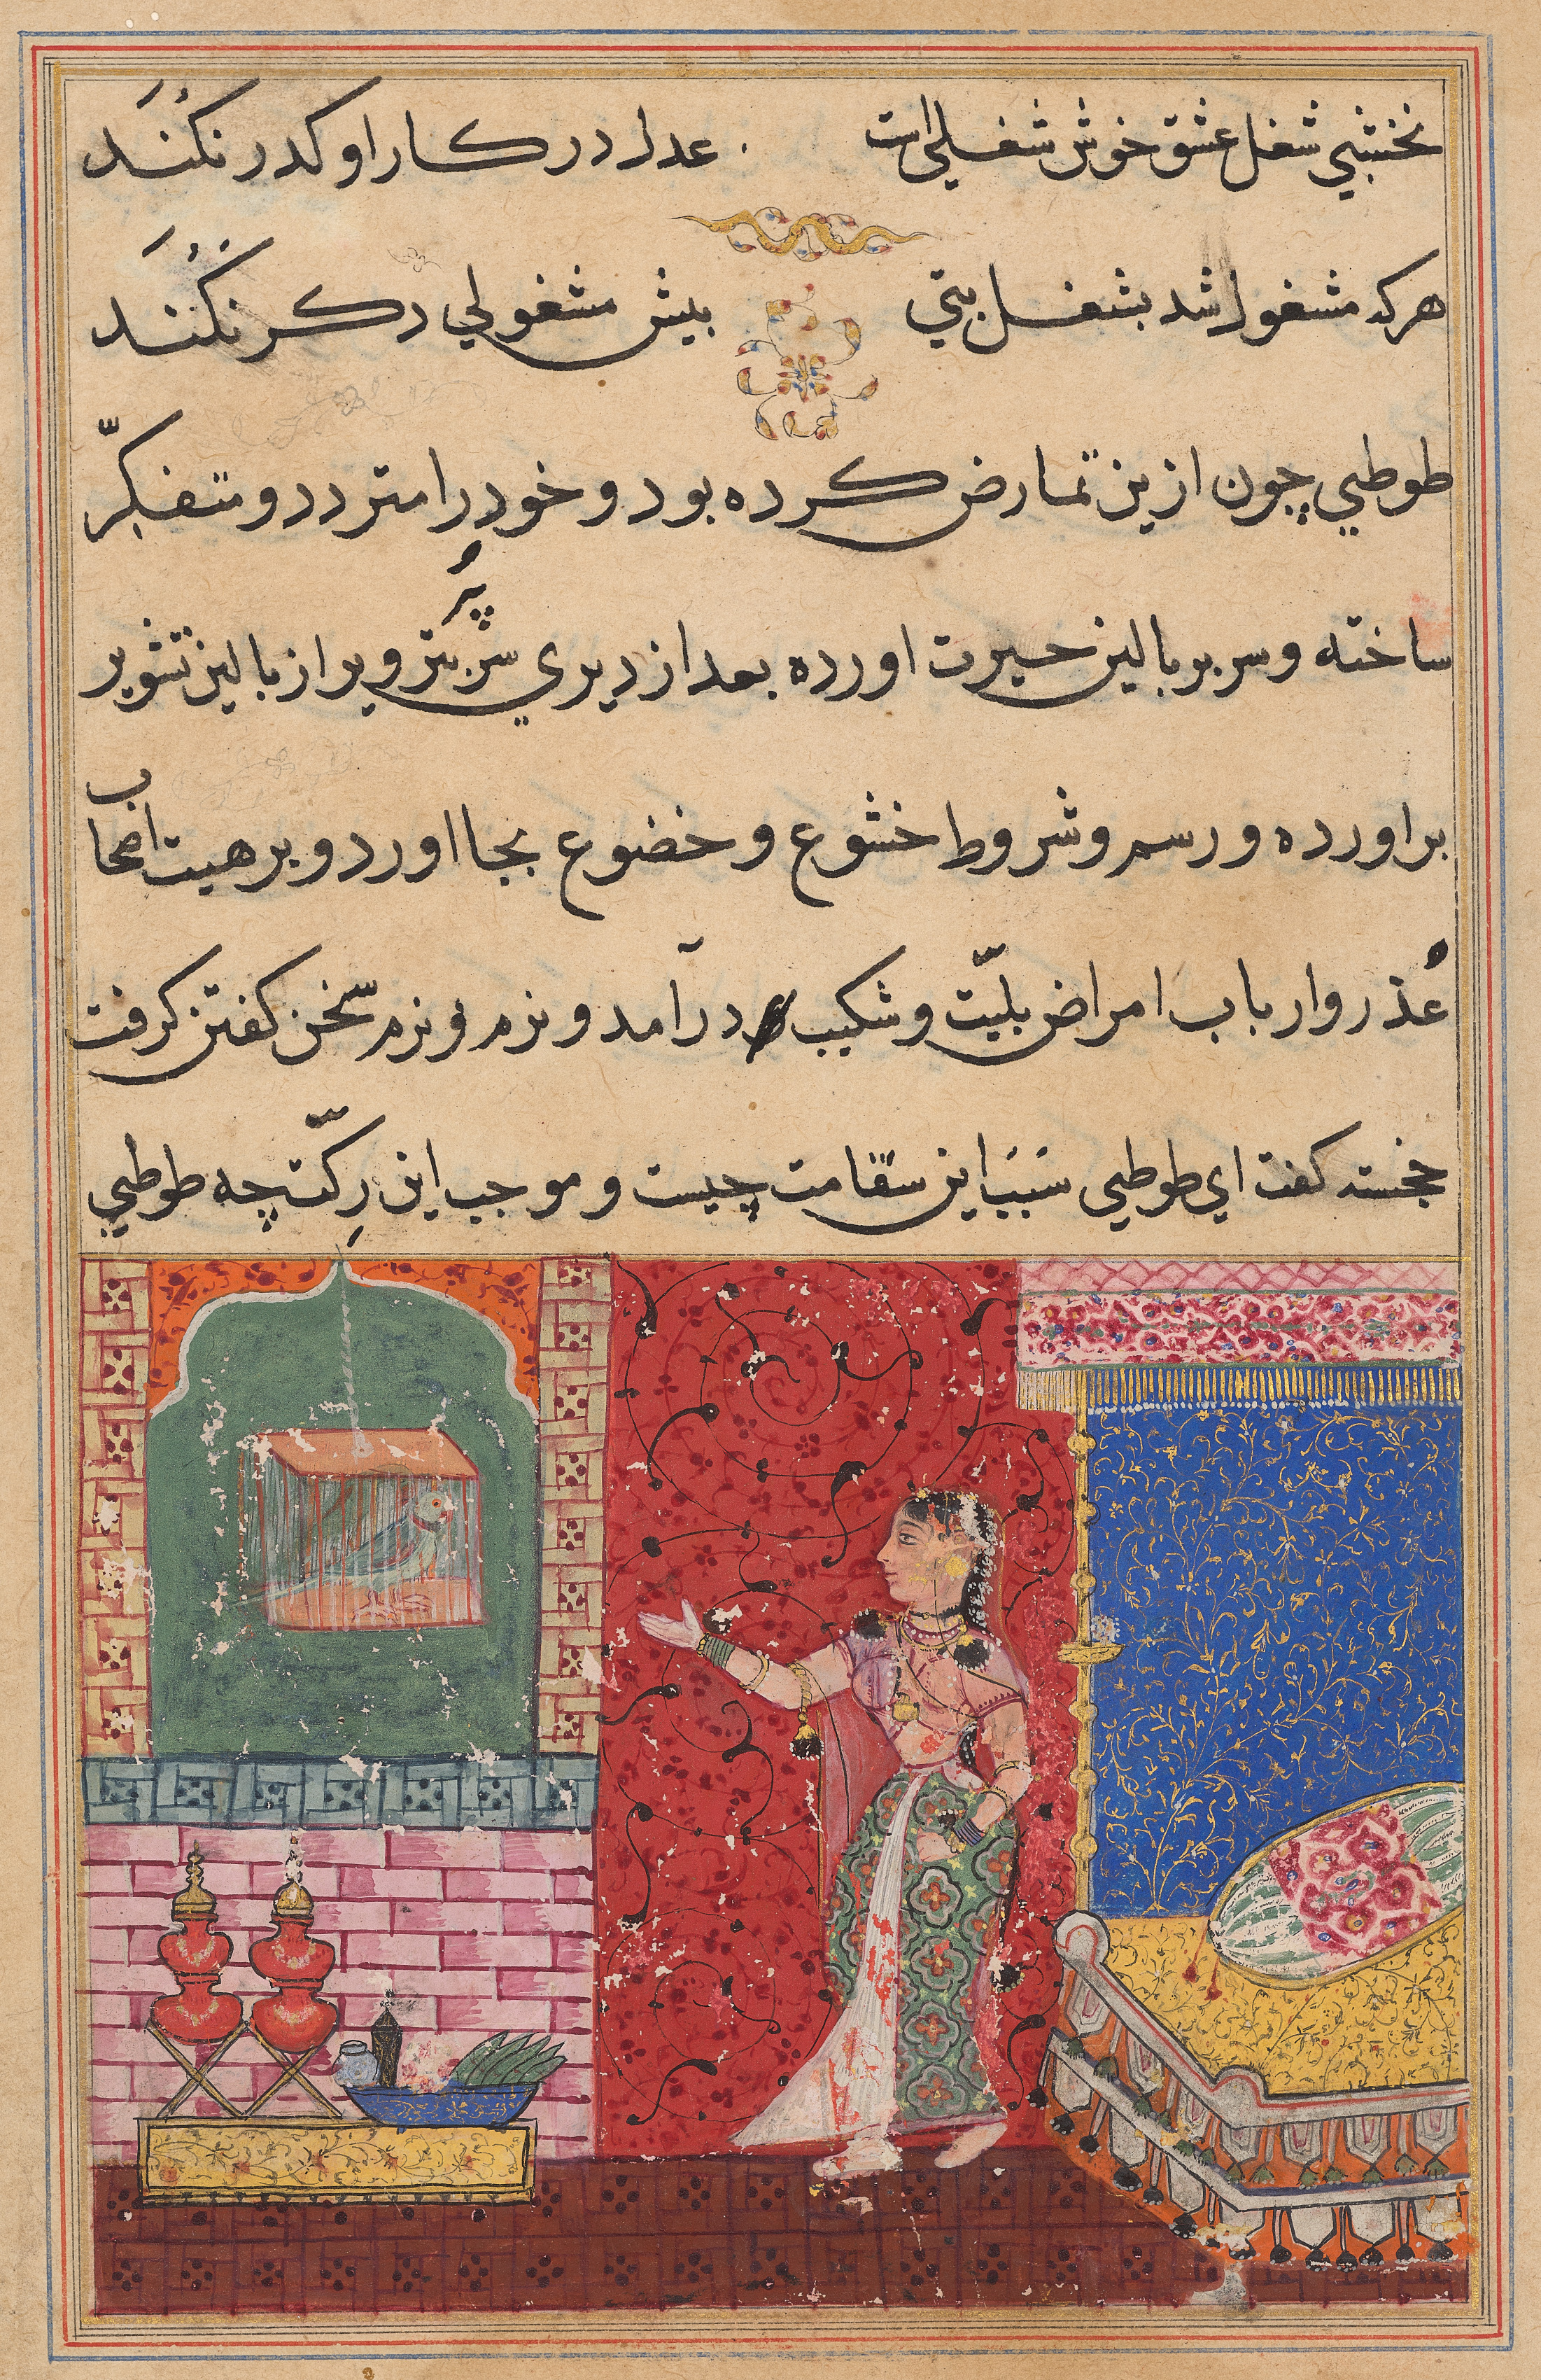 نخشبي شغل عشق خوش شغلي است عدل در كار او كدر نكند
هركه مشغول شد بشغل بتي بيش مشغولي دكر نكند
طوطي چون ازين تمارض كرده بود و خود را متردد و متفكّر
ساخته و سر بر بالين حيرت اورده بعد از ديري سر پر تزوير از بالين تشوير
براورده و رسم و شروط خشوع و خضوع بجا اورد و بر هيت اصحاب
عُذر وارباب امراض بليّت و شكيب درآمد و نرم نرم سخن كفتن كرفت
خجسته كفت اي طوطي سبب اين سقامت چيست و موجب اين رِكّت چه طوطي